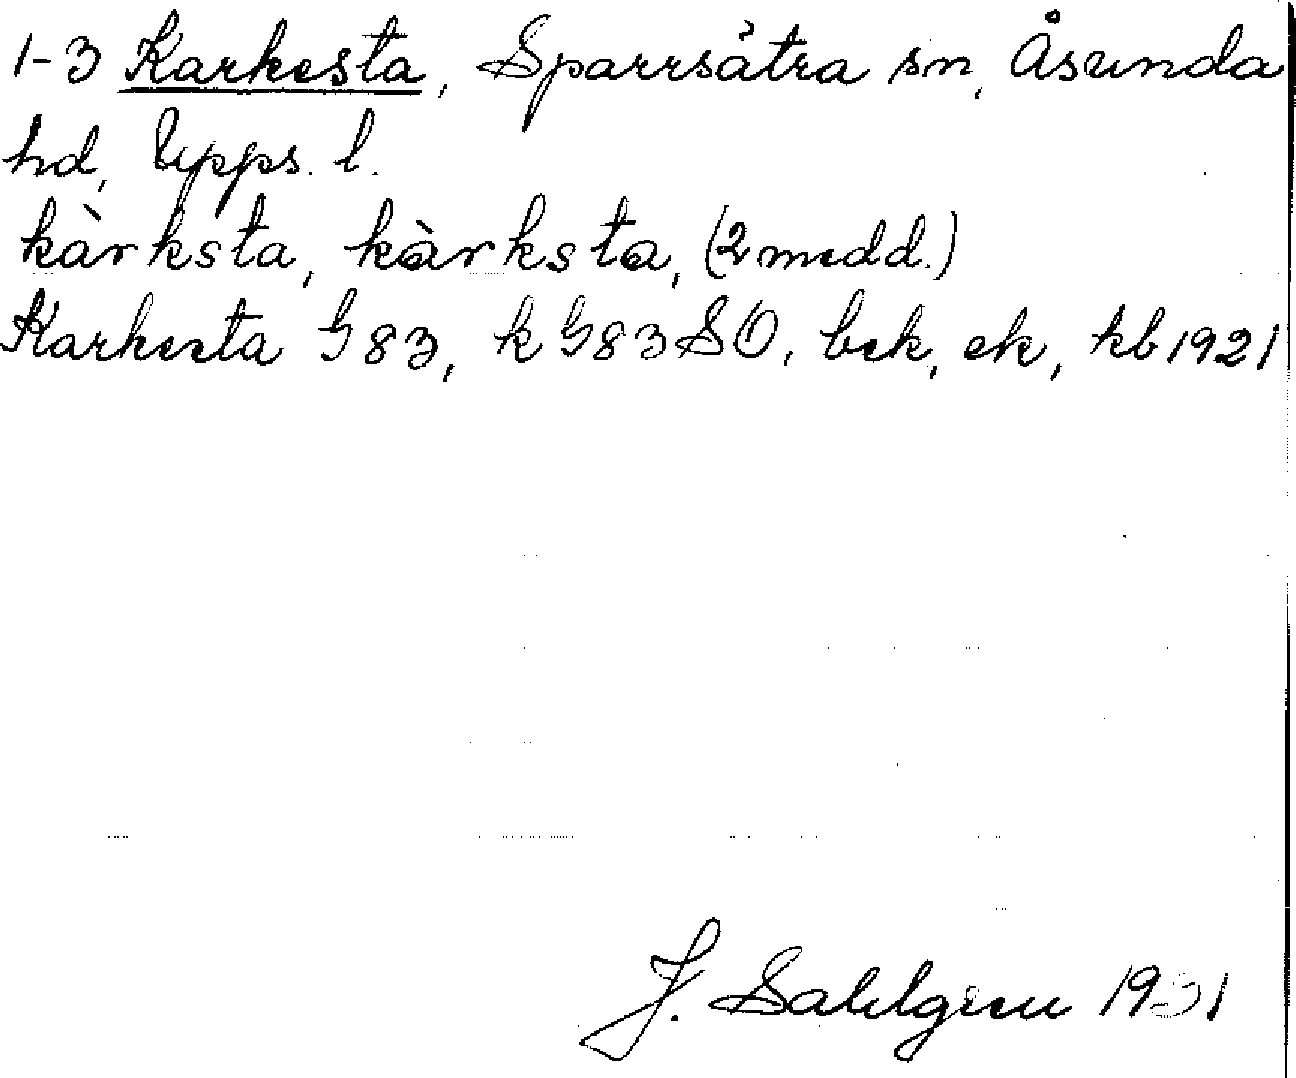 1-3 Karkesta, Sparrsätra sn, Åsunda
hd, Upps. l.
kàrksta, kàrksta, (2 medd.)
Karkesta G 83, k G83 SO, bek, ek, kb 1921
J. Sahlgren 1931